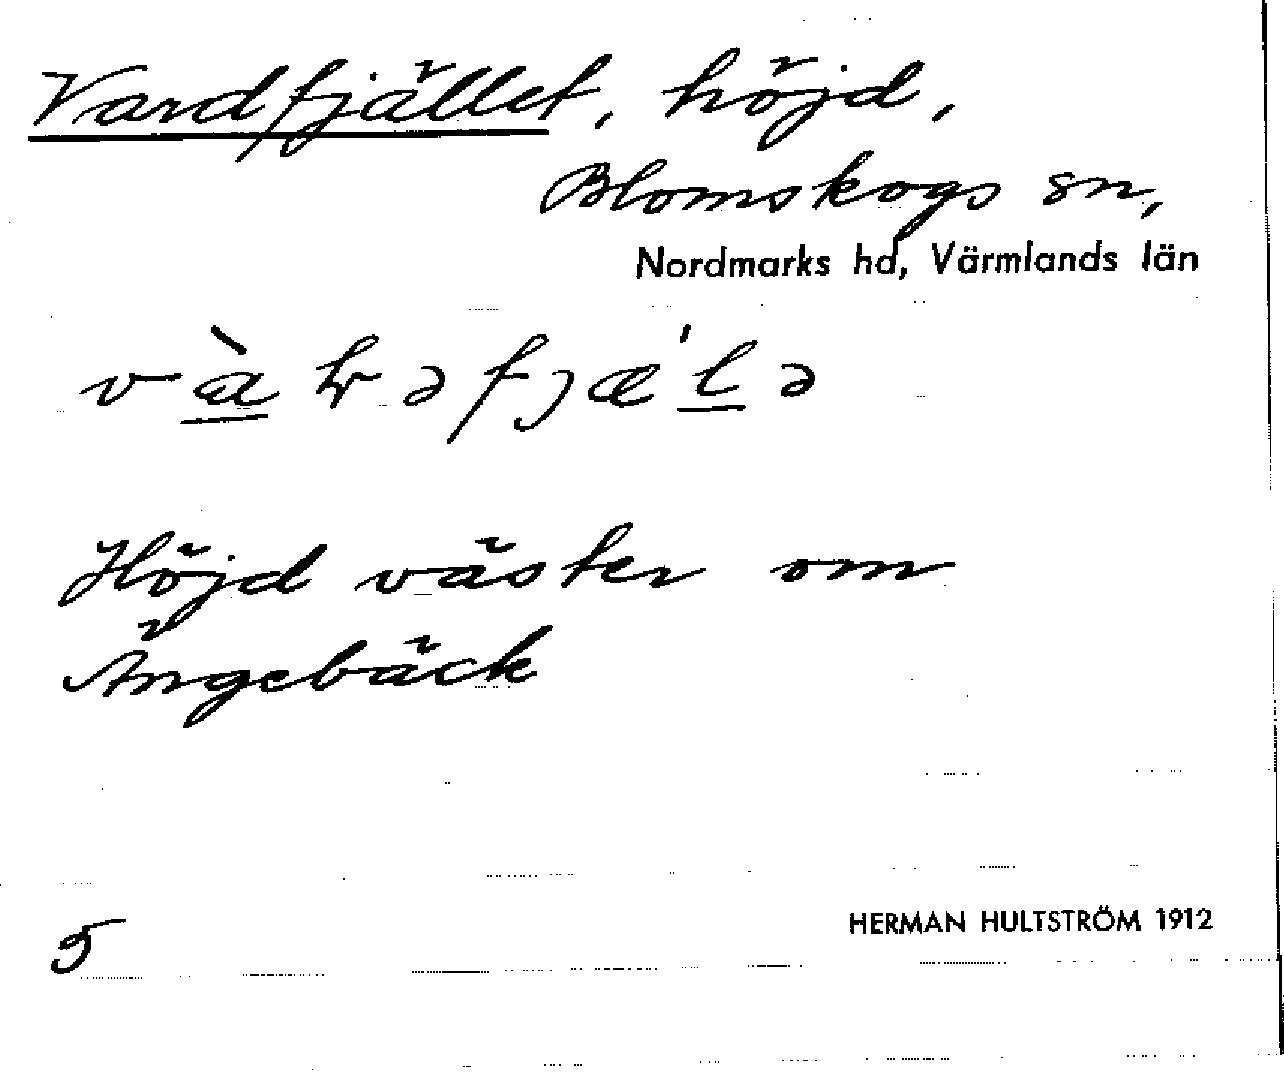 Vardfjället, höjd,
Blomskogs sn,
Nordmarks hd, Värmlands län
Höjd väster om
Ängebäck
5
HERMAN HULTSTRÖM 1912